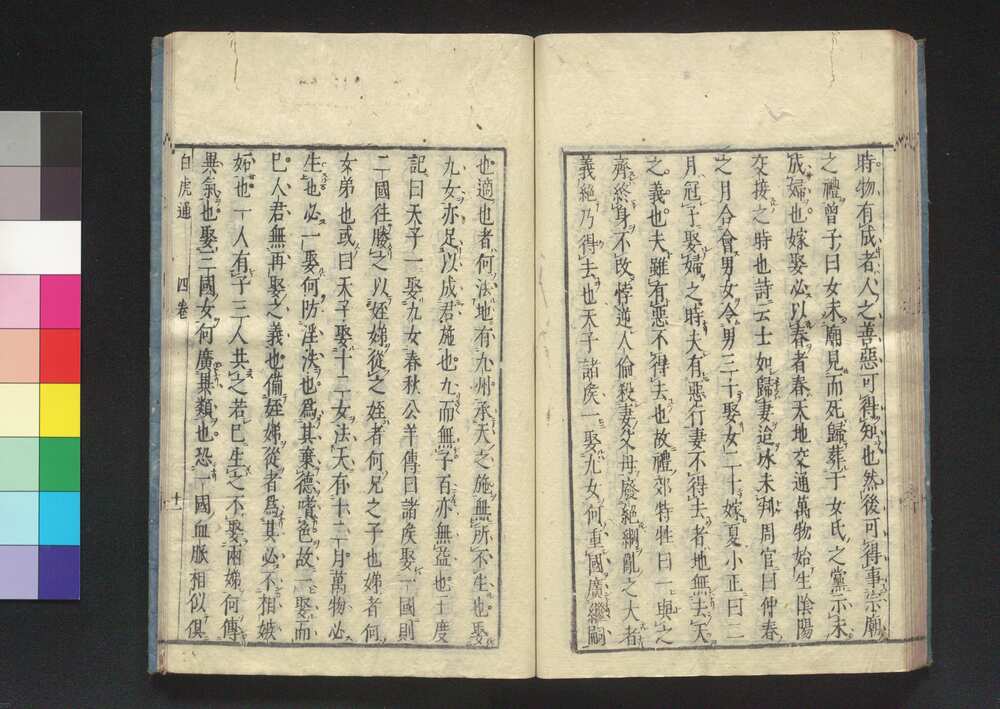 時物有成者人之善惡可得知也然後可得事宗廟
之禮曾子曰女未廟見而死歸葬于女氏之黨示未
成婦也嫁娶必以春者春天地交通萬物始生陰陽
交接之時也詩云士如歸妻迨冰未判周官曰仲春
之月令會男女令男三十娶女二十嫁夏小正曰二
月冠子娶婦之時夫有惡行妻不得去者地無去天
之義也夫雖有惡不得去也故禮郊特牲曰一與之
齊終身不改悖逆人倫殺妻父母廢絕綱亂之大者
義絕乃得去也天子諸矦一娶九女何重國廣繼嗣
也適也者何法地有九州承天之施無所不生也娶
九女亦足以成君施也九而無子百亦無益也王度
記曰天子一娶九女春秋公羊傳曰諸矦娶一國則
二國往媵之以姪娣從之姪者何兄之子也娣者何
女弟也或曰天子娶十二女法天有十二月萬物必
生也必一娶何防淫泆也為其棄德嗜色故一娶而
已人君無再娶之義也備姪娣從者為其必不相嫉
妬也一人有子三人共之若已生之不娶兩娣何傳
異氣也娶三國女何廣異類也恐一國血脈相似俱
白虎通
四卷
十一